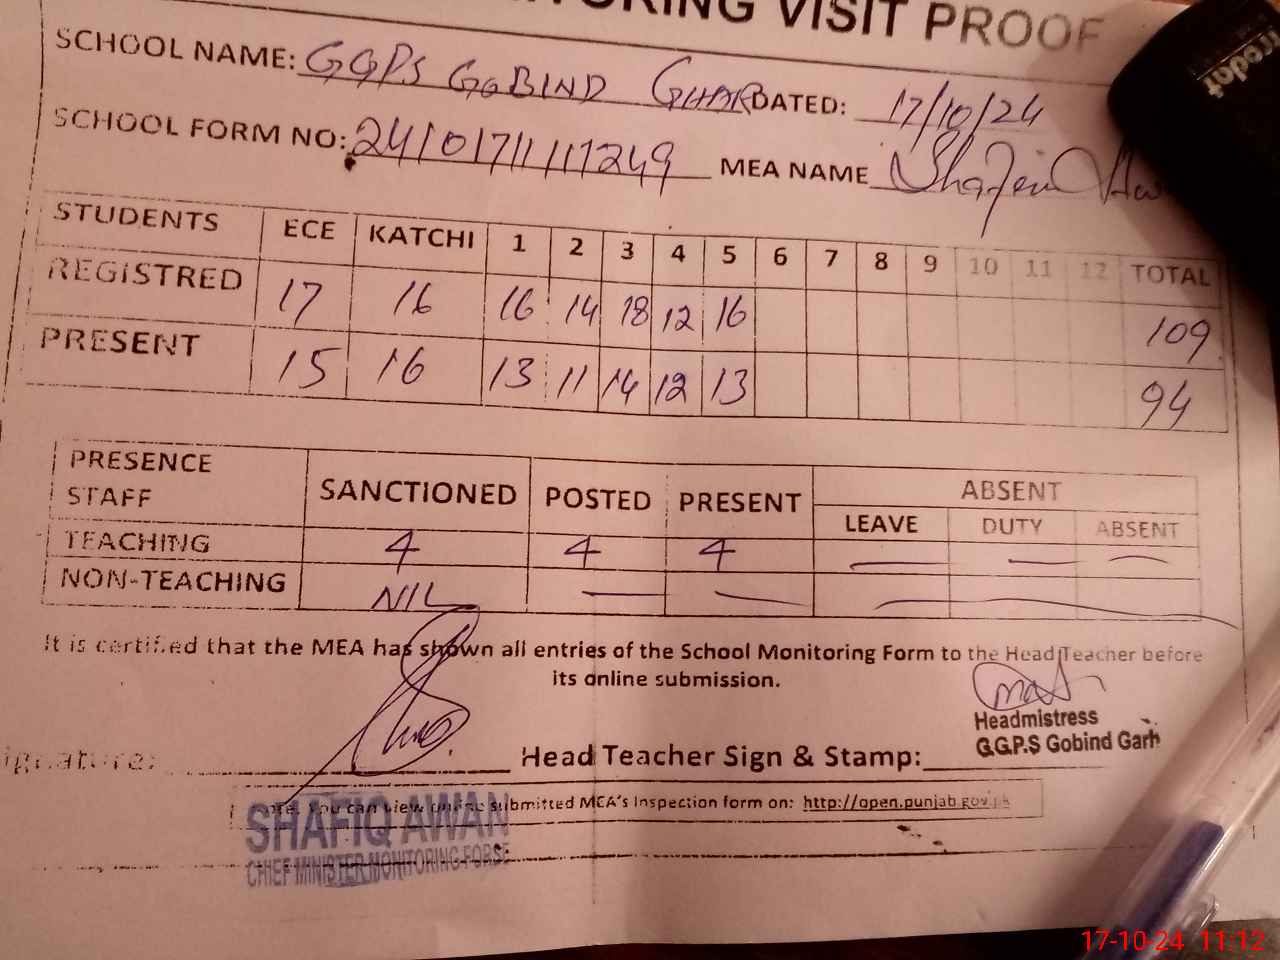 ORING VISIT PROOF
SCHOOL NAME: GGPS GOBIND GHAR DATED: 17/10/24
SCHOOL FORM NO: 241017111117249 MEA NAME Shafiq Aw
STUDENTS ECE KATCHI 1 2 3 4 5 6 7 8 9 10 11 12 TOTAL
REGISTRED 17 16 16 14 18 12 16 109
PRESENT 15 16 13 11 14 12 13 94
PRESENCE STAFF SANCTIONED POSTED PRESENT ABSENT
LEAVE DUTY ABSENT
TEACHING 4 4 4 — — —
NON-TEACHING NIL — — —
It is certified that the MEA has shown all entries of the School Monitoring Form to the Head Teacher before
its online submission.
Headmistress
G.G.P.S Gobind Garh
ignature: Head Teacher Sign & Stamp:
you can view online submitted MCA's Inspection form on: http://open.punjab.gov.pk
SHAFIQ AWAN
CHIEF MINISTER MONITORING FORSE
17-10-24 11:12